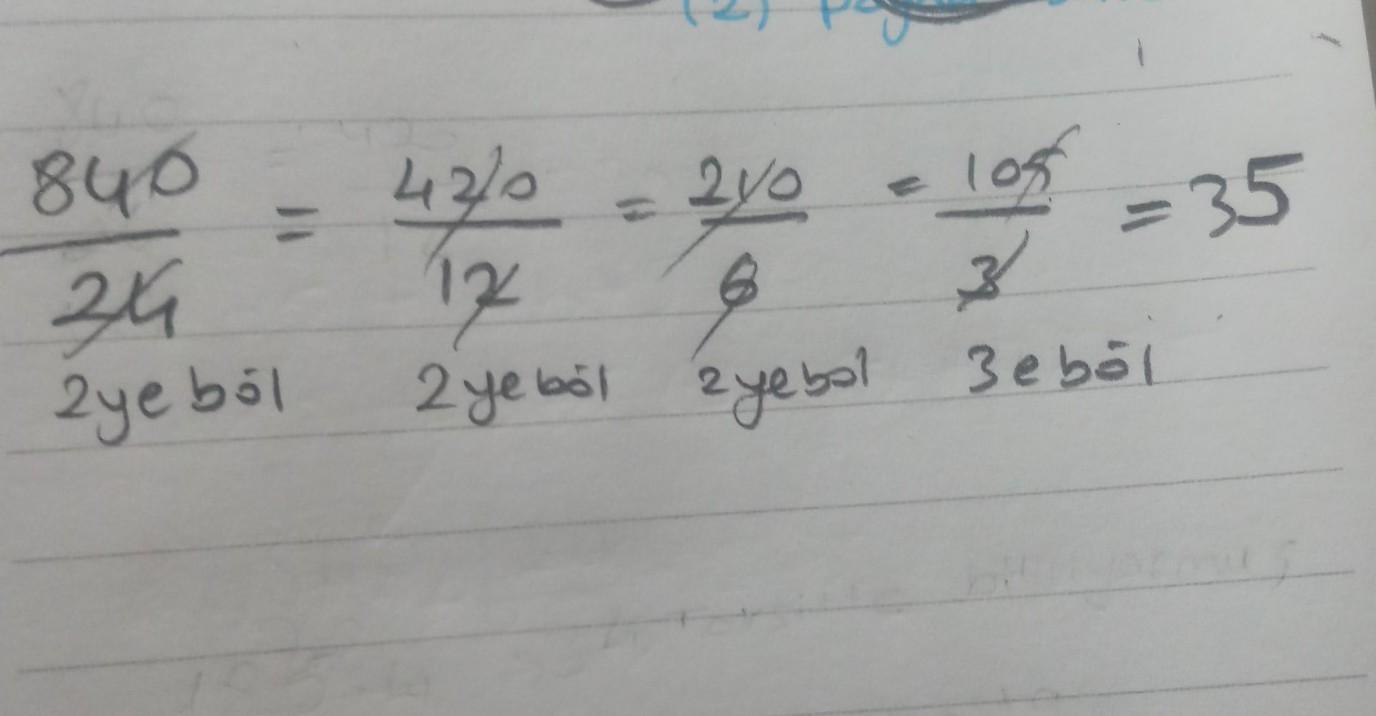 (2)
840/24 = 420/12 = 210/6 = 105/3 = 35
2ye böl 2ye böl 2ye böl 3e böl